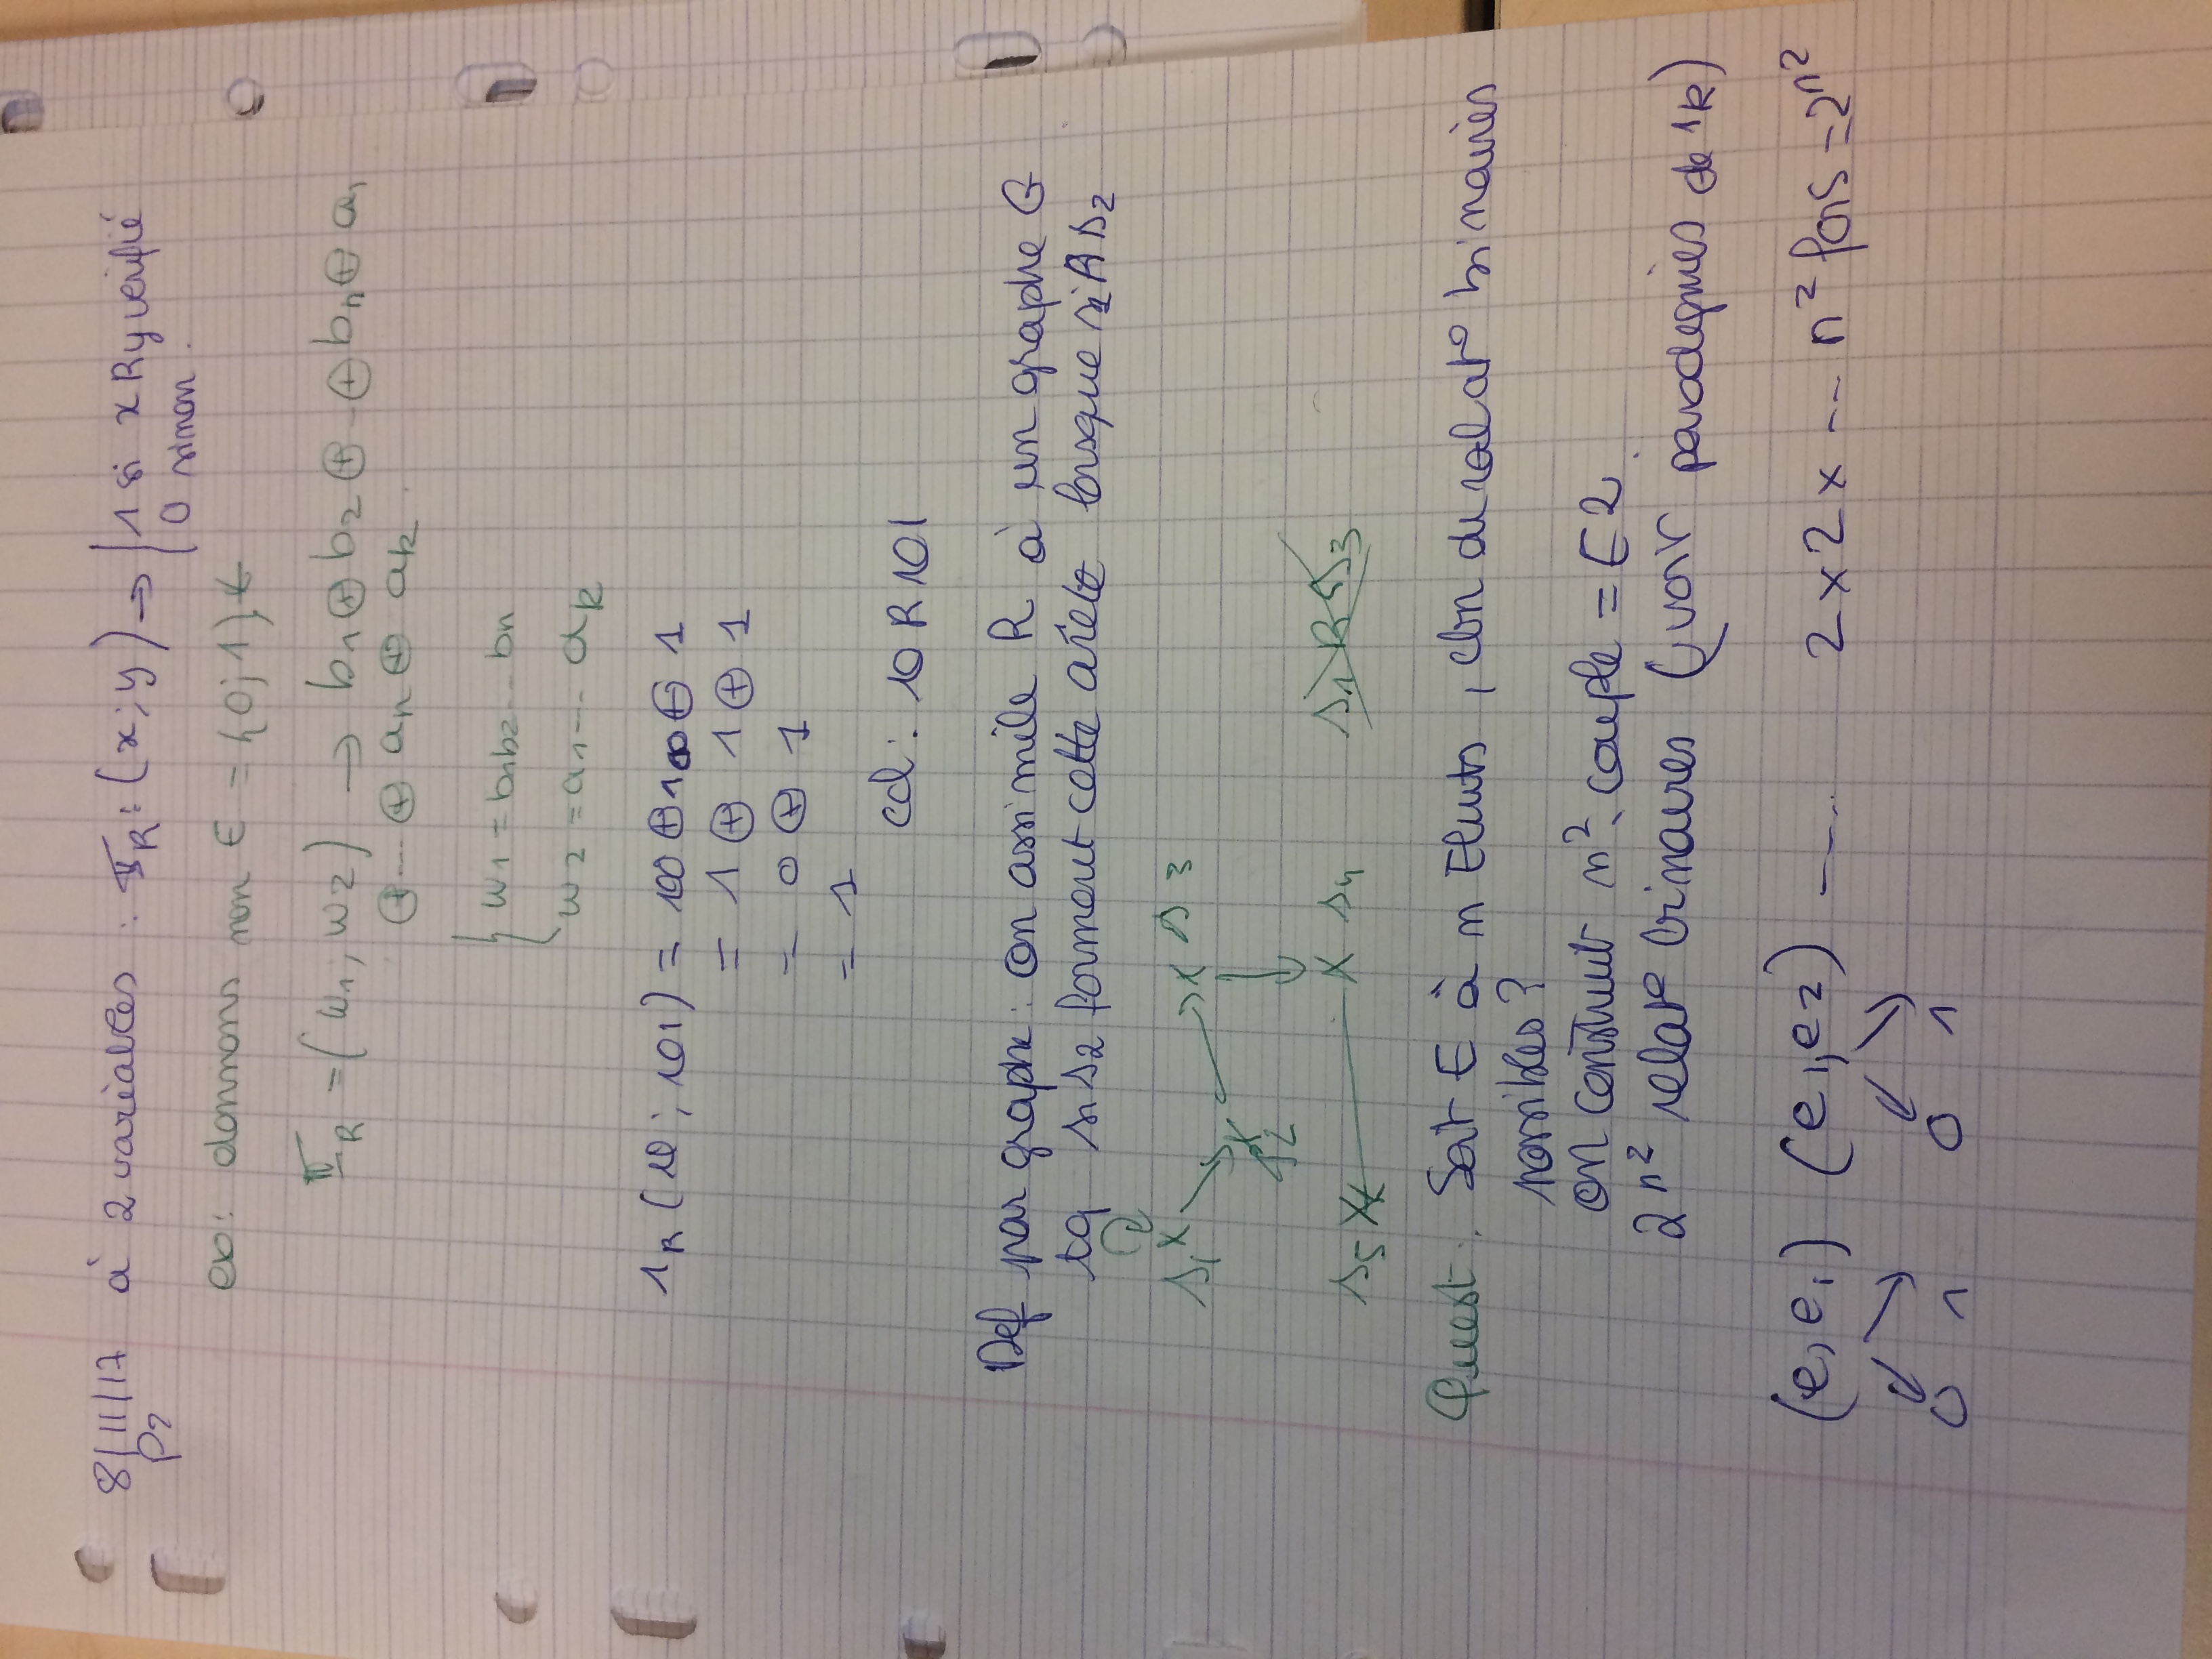 8/11/17 à 2 variables : 𝟙R : (x; y) → | 1 si x R y vérifié
P2 | 0 sinon.
ex: donnons E = {0; 1}*
𝟙R = (w1; w2) → b1 ⊕ b2 ⊕ … ⊕ bn ⊕ a1
⊕ … ⊕ an ⊕ ak.
{ w1 = b1b2 … bn
w2 = a1 … ak
1R (10; 101) = 1⊕0⊕1⊕0⊕1
= 1 ⊕ 1 ⊕ 1
= 0 ⊕ 1
= 1
ccl: 10 R 101
Def par graphe: on assimile R à un graphe G
tq s1 s2 forment cette arête lorsque s1 R s2
s1 x x s3
x
s2
s5 x x s4 s1 R s3
Quest: Soit E à n Elmts, cbn de relat° binaires
possibles?
on construit n² couple = E2.
2^n² relat° binaires (voir de 1R)
(e, e1) (e1, e2) ---- 2 x 2 x -- n² fois = 2^n²
0 1 0 1